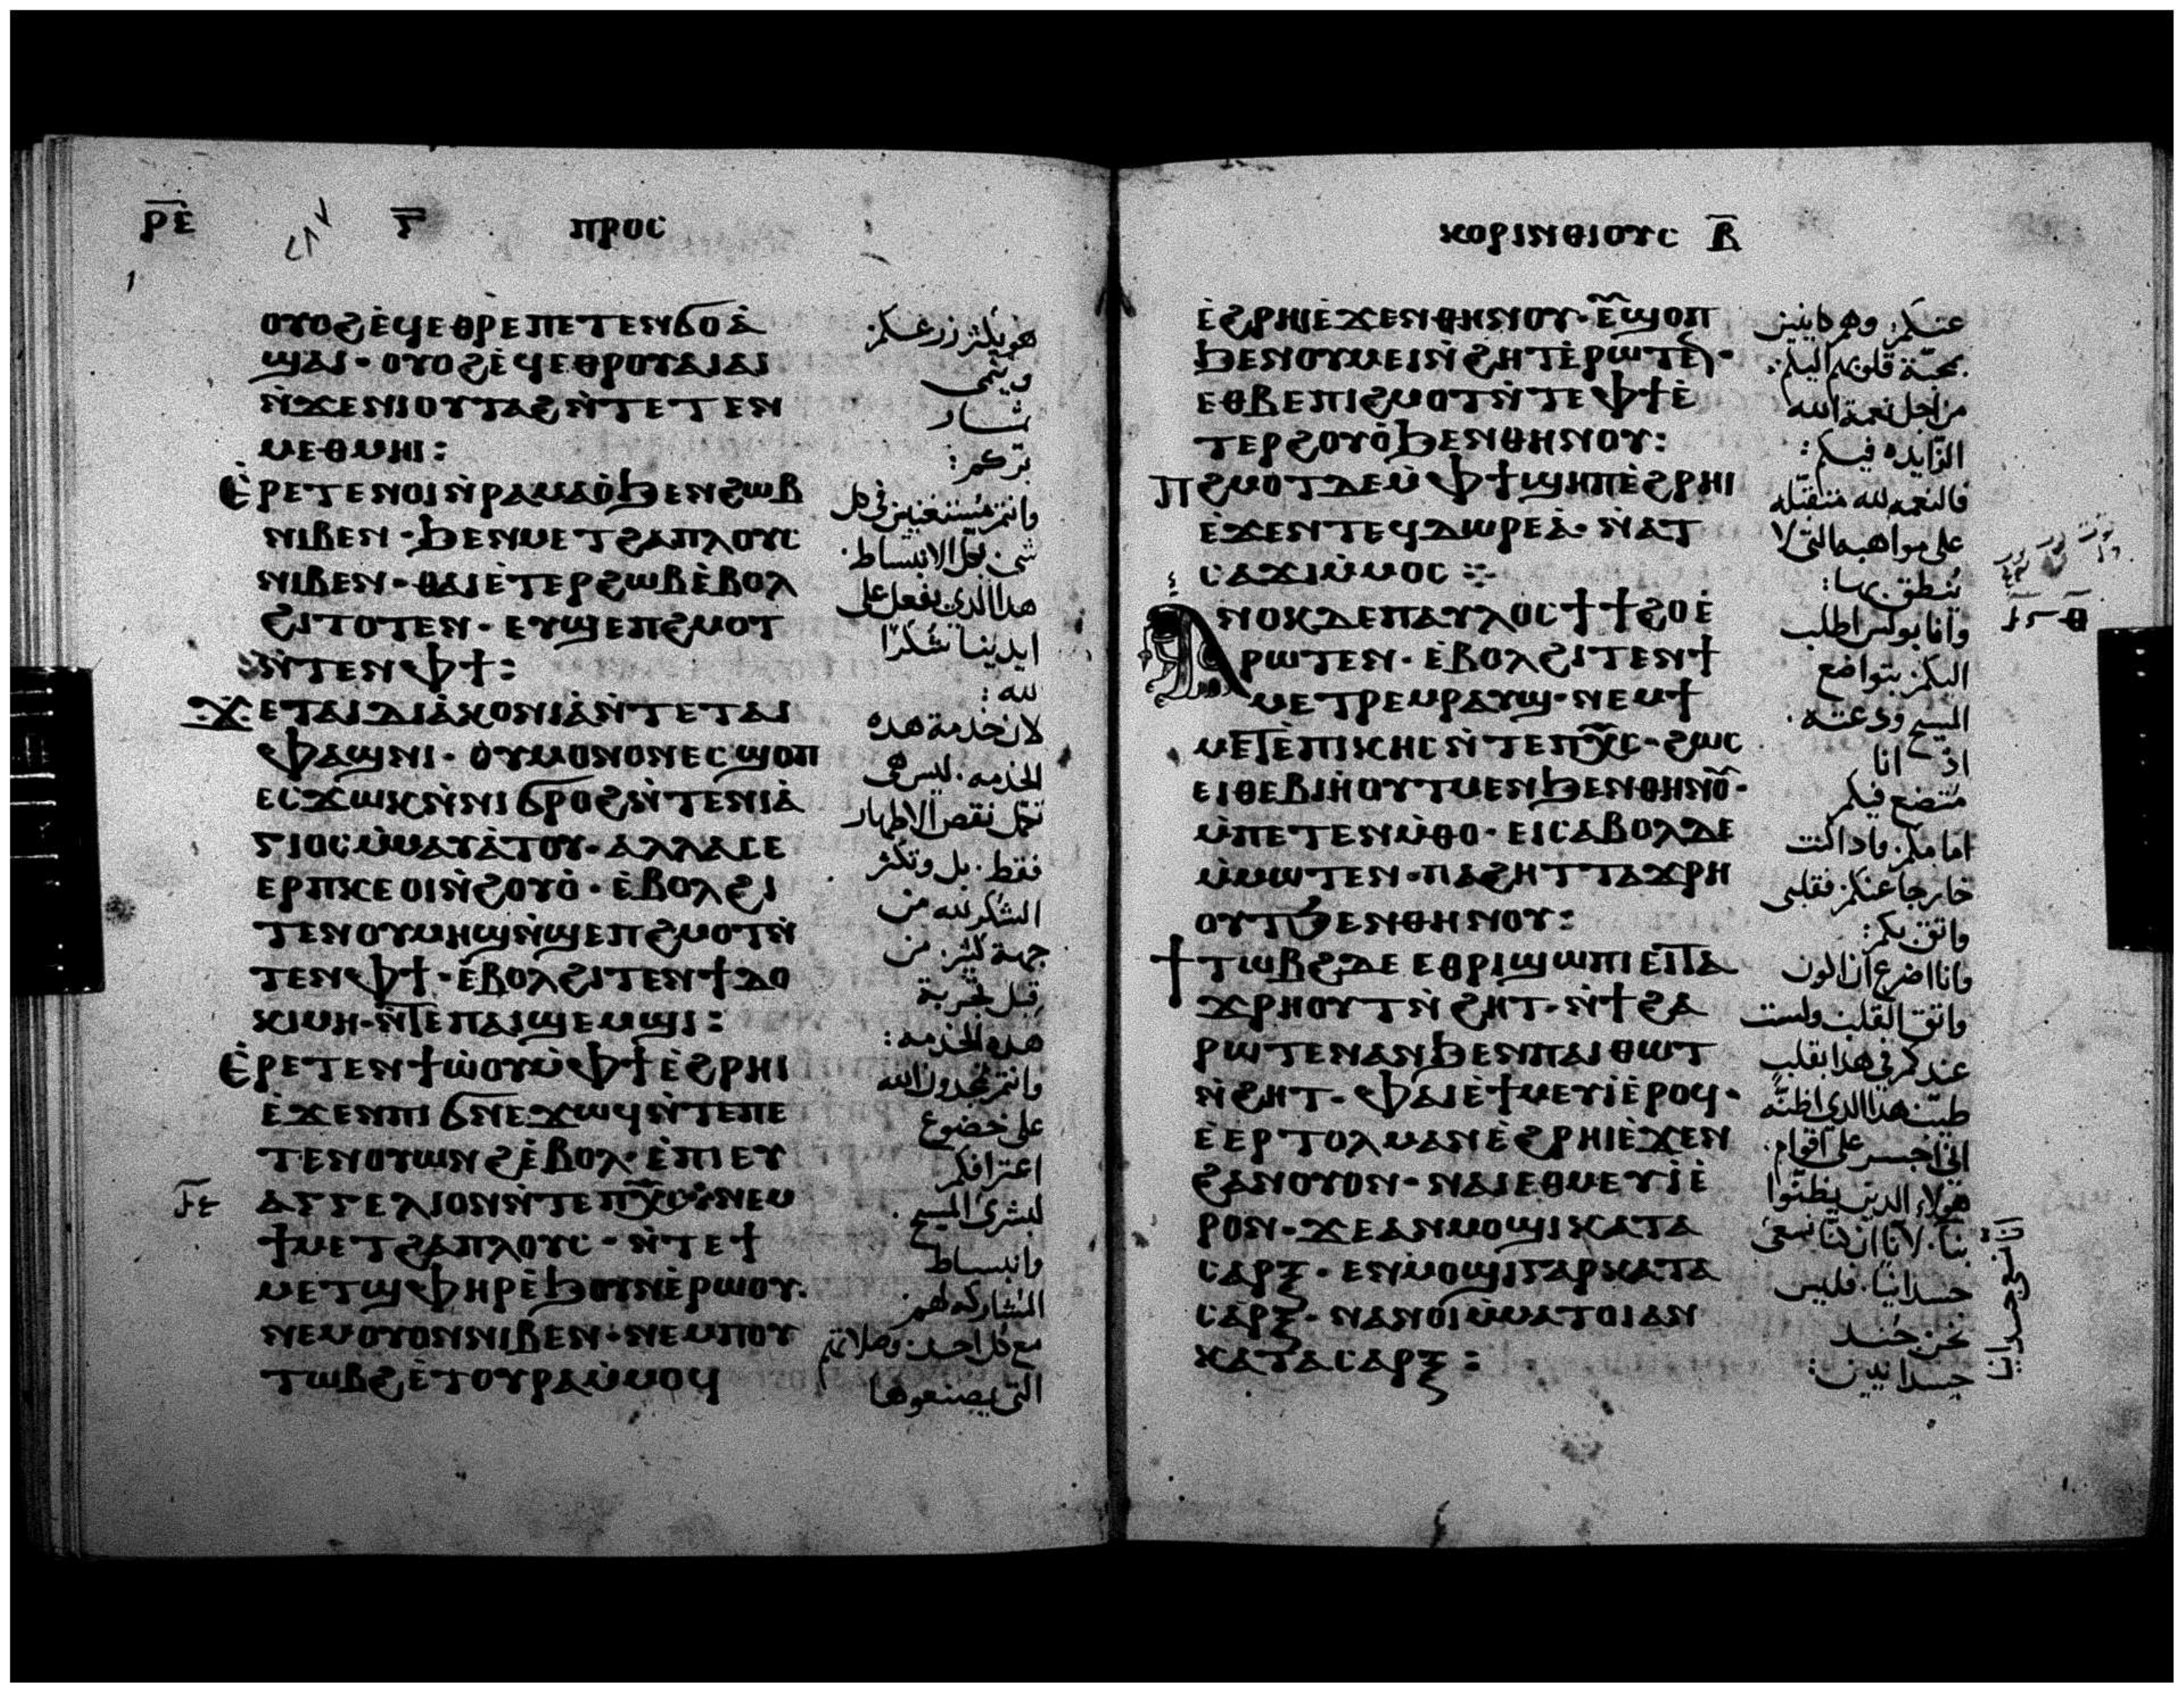 ⲣ̅ⲉ̅ ⲅ̅ ⲡⲣⲟⲥ
ⲟⲩⲟϩ ⲉ̀ϥⲉⲑⲣⲉⲡⲉⲧⲉⲛϭⲟⲁ̀
ϣⲁⲓ · ⲟⲩⲟϩ ⲉ̀ϥⲉⲑⲣⲟⲩⲁⲓⲁⲓ
ⲛ̀ϫⲉⲛⲓⲟⲩⲧⲁϩ ⲛ̀ⲧⲉⲧⲉⲛ
ⲙⲉⲑⲙⲏⲓ :
ⲉ̀ⲣⲉⲧⲉⲛⲟⲓⲛ̀ⲣⲁⲙⲁⲟ̀ ϧⲉⲛϩⲱⲃ
ⲛⲓⲃⲉⲛ · ϧⲉⲛⲙⲉⲧϩⲁⲡⲗⲟⲩⲥ
ⲛⲓⲃⲉⲛ · ⲑⲁⲓ ⲉ̀ⲧⲉⲣϩⲱⲃ ⲉ̀ⲃⲟⲗ
ϩⲓⲧⲟⲧⲉⲛ · ⲉⲩϣⲉⲡϩⲙⲟⲧ
ⲛ̀ⲧⲉⲛⲫϯ :
ϫⲉⲧⲁⲓⲇⲓⲁ̀ⲕⲟⲛⲓⲁ̀ ⲛ̀ⲧⲉⲧⲁⲓ
ⲫⲁϣⲛⲓ · ⲟⲩⲙⲟⲛⲟⲛ ⲉⲥϣⲟⲡ
ⲉⲥϫⲱⲕ ⲛ̀ⲛⲓϭⲣⲟϩ ⲛ̀ⲧⲉⲛⲓⲁ̀
ⲅⲓⲟⲥ ⲙ̀ⲙⲁⲩⲁ̀ⲧⲟⲩ · ⲁⲗⲗⲁ ⲥⲉ
ⲉⲣⲡⲕⲉⲟⲓ ⲛ̀ϩⲟⲩⲟ̀ · ⲉ̀ⲃⲟⲗϩⲓ
ⲧⲉⲛⲟⲩⲙⲏϣ ⲛ̀ϣⲉⲡϩⲙⲟⲧ ⲛ̀
ⲧⲉⲛⲫϯ · ⲉ̀ⲃⲟⲗϩⲓⲧⲉⲛϯⲇⲟ
ⲕⲓⲙⲏ · ⲛ̀ⲧⲉⲡⲁⲓϣⲉⲙϣⲓ :
ⲉ̀ⲣⲉⲧⲉⲛϯⲱ̀ⲟⲩ ⲙ̀ⲫϯ ⲉ̀ϩⲣⲏⲓ
ⲉ̀ϫⲉⲛⲡⲓϭⲛⲉϫⲱϥ ⲛ̀ⲧⲉⲡⲉ
ⲧⲉⲛⲟⲩⲱⲛϩ ⲉ̀ⲃⲟⲗ · ⲉ̀ⲡⲓⲉⲩ
ⲁⲅⲅⲉⲗⲓⲟⲛ ⲛ̀ⲧⲉⲡⲭ̅ⲥ̅ · ⲛⲉⲙ
ϯⲙⲉⲧϩⲁⲡⲗⲟⲩⲥ · ⲛ̀ⲧⲉϯ
ⲙⲉⲧϣⲫⲏⲣ ⲉ̀ϧⲟⲩⲛ ⲉ̀ⲣⲱⲟⲩ ·
ⲛⲉⲙⲟⲩⲟⲛ ⲛⲓⲃⲉⲛ · ⲛⲉⲙⲡⲟⲩ
ⲧⲱⲃϩ ⲉ̀ⲧⲟⲩⲣⲁ ⲙ̀ⲙⲟϥ
هو يكثر زرعكم
وينمى
ثمار
بركم :
وانتم مستغنين فى كل
شى بكل الانبساط.
هذا الذى يفعل على
ايدينا شكرا
لله :
لان خدمة هذه
الخدمه. ليس هى
تكمل نقص الاطهار
فقط. بل وتكثر
الشكر لله من
جهة كثير. من
قبل تجربة
هذه الخدمه :
وانتم تمجدون الله
على خضوع
اعترافكم
لبشرى المسيح.
وانبساط
المشاركه لهم
مع كل احد. وصلاتهم
التى يصنعوها
ⲕⲟⲣⲓⲛⲑⲓⲟⲩⲥ ⲃ̅
ⲉ̀ϩⲣⲏⲓ ⲉ̀ϫⲉⲛⲑⲏⲛⲟⲩ · ⲉⲩ̅ϣⲟⲡ
ϧⲉⲛⲟⲩⲙⲉⲓ ⲛ̀ϩⲏⲧ ⲉ̀ⲣⲱⲧⲉⲛ ·
ⲉⲑⲃⲉⲡⲓϩⲙⲟⲧ ⲛ̀ⲧⲉⲫϯ ⲉ̀
ⲧⲉⲣϩⲟⲩⲟ̀ ϧⲉⲛⲑⲏⲛⲟⲩ :
ⲡϩⲙⲟⲧ ⲇⲉ ⲙ̀ⲫϯ ϣⲏⲡ ⲉ̀ϩⲣⲏⲓ
ⲉ̀ϫⲉⲛⲧⲉϥⲇⲱⲣⲉⲁ̀ · ⲛ̀ⲁⲧ
ⲥⲁϫⲓ ⲙ̀ⲙⲟⲥ :·
ⲁⲛⲟⲕ ⲇⲉ ⲡⲁⲩⲗⲟⲥ ϯϯϩⲟ ⲉ̀
ⲣⲱⲧⲉⲛ · ⲉ̀ⲃⲟⲗϩⲓⲧⲉⲛϯ
ⲙⲉⲧⲣⲉⲙⲣⲁⲩϣ · ⲛⲉⲙϯ
ⲙⲉⲧⲉ̀ⲡⲓⲕⲏⲥ ⲛ̀ⲧⲉⲡⲭ̅ⲥ̅ · ϩⲱⲥ
ⲉⲓⲑⲉⲃⲓⲏ̀ⲟⲩⲧ ⲙⲉⲛ ϧⲉⲛⲑⲏⲛⲟⲩ ·
ⲙ̀ⲡⲉⲧⲉⲛⲙ̀ⲑⲟ · ⲉⲓⲥⲁⲃⲟⲗ ⲇⲉ
ⲙ̀ⲙⲱⲧⲉⲛ · ⲡⲁϩⲏⲧ ⲧⲁϫⲣⲏ
ⲟⲩⲧ ϧⲉⲛⲑⲏⲛⲟⲩ :
ϯⲧⲱⲃϩ ⲇⲉ ⲉⲑⲣⲓϣⲱⲡⲓ ⲉⲓⲧⲁ
ϫⲣⲏⲟⲩⲧ ⲛ̀ϩⲏⲧ · ⲛ̀ϯϩⲁ
ⲣⲱⲧⲉⲛ ⲁⲛ ϧⲉⲛⲡⲁⲓⲑⲱⲧ
ⲛ̀ϩⲏⲧ · ⲫⲁⲓ ⲉ̀ϯⲙⲉⲩⲓ̀ ⲉ̀ⲣⲟϥ ·
ⲉ̀ⲉⲣⲧⲟⲗⲙⲁⲛ ⲉ̀ϩⲣⲏⲓ ⲉ̀ϫⲉⲛ
ϩⲁⲛⲟⲩⲟⲛ · ⲛⲁⲓ ⲉⲑⲙⲉⲩⲓ̀ ⲉ̀
ⲣⲟⲛ · ϫⲉⲁⲛⲙⲟϣⲓ ⲕⲁⲧⲁ
ⲥⲁⲣⲝ · ⲉⲛⲙ̀ⲟϣⲓ ⲅⲁⲣ ⲕⲁⲧⲁ
ⲥⲁⲣⲝ · ⲛⲁⲛⲟⲓ ⲙ̀ⲙⲁⲧⲟⲓ ⲁⲛ
ⲕⲁⲧⲁ ⲥⲁⲣⲝ :
عنكم. وهم كاينين
بمحبّة قلوبهم اليكم :
من اجل نعمة الله
الزايده فيكم :
فالنعمه لله متقبّله
على مواهبه التى لا
يُنطق بها :
وانا بولس اطلب
اليكم بتواضع
المسيح ودعته.
اذ انا
متضع فيكم
امامكم. واذا كنت
خارجا عنكم فقلبى
واثق بكم :
وانا اضرع ان اكون
واثق القلب ولست
عندكم فى هذا بقلب
طيب هذا الذى اظنّه
انى اجسر على اقوام.
هولاء الذين يظنّوا
بنا. لانّا ان كنّا نسعى
جسدانيا. فليس
نحن جند
جسدانيين :